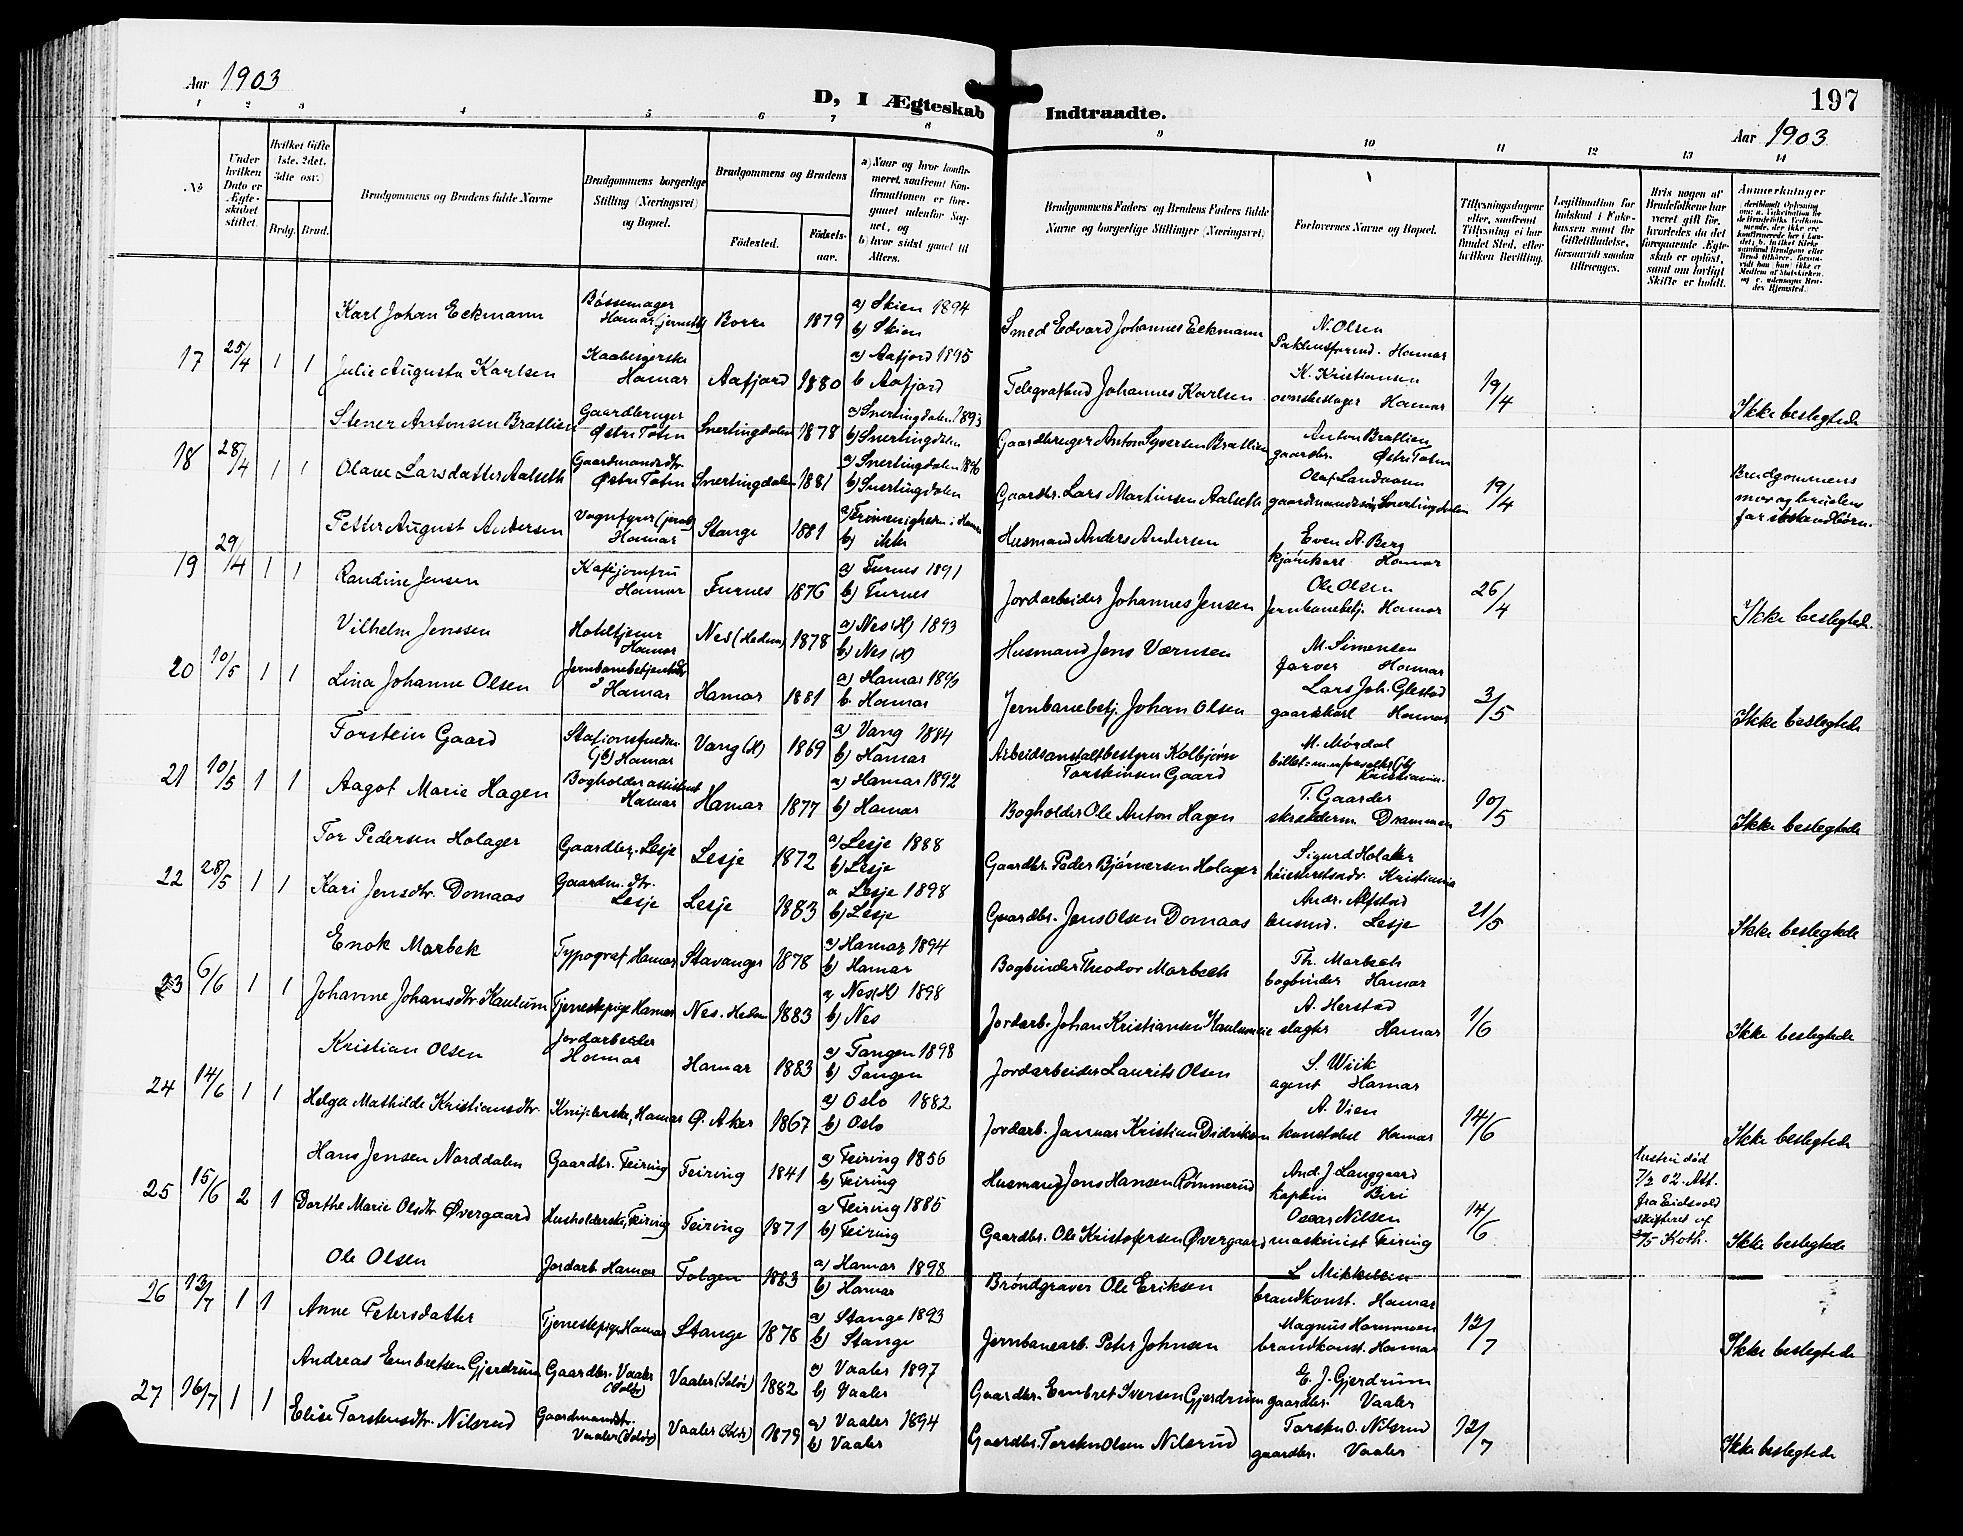 Aar 1903
D, I Ægteskab Indtraadte.
197
Aar 1903
1 2 3 4 5 6 7 8 9 10 11 12 13 14
No
Under hvilken Dato er Ægteskabet stiftet.
Hvilket Gifte 1ste. 2det. 3die osv.)
Brdg. Brud.
Brudgommens og Brudens fulde Navne
Brudgommens borgerlige Stilling (Næringsvei) og Bopæl.
Brudgommens og Brudens
Födested.
Födselsaar.
a) Naar og hvor konfirmeret, saafremt Konfirmationen er foregaaet udenfor Sognet, og
b) hvor sidst gaaet til Alters.
Brudgommens Faders og Brudens Faders fulde Navne og borgerlige Stillinger (Næringsvei)
Forlovernes Navne og Bopæl.
Tillysningsdagene eller, saafremt Tillysning ei har fundet Sted, efter hvilken Bevilling.
Legitimation for Indskud i Enkekassen samt for Giftetilladelse, forsaavidt saadan tiltrænges.
Hvis nogen af Brudefolkene har været gift før, hvorledes da det foregaaende Ægteskab er opløst, samt om lovligt Skifte er holdt.
Anmerkninger
17 25/4 1 1
Karl Johan Eckmann Bøssemager Hamar Borre 1879 a) Skien 1894 b) Skien Smed Edvard Johannes Eckmann N. Olsen Hamar
Julie Augusta Karlsen Hamar Aafjord 1880 a) Aafjord 1895 b Aafjord Telegrafbud Johannes Karlsen K. Kristiansen Hamar 19/4 Ikke beslegtede
18 28/4 1 1
Stener Antonsen Bratlien Gaardbruger Østre Toten Snertingdalen 1878 a) Snertingdalen 1893 b) Snertingdalen Gaardbruger Anton Syversen Bratlien Anton Bratlien gaardbr. Østre Toten
Olave Larsdatter Aalseth Gaardmandsdtr. Østre Toten Snertingdalen 1881 a) Snertingdalen 1896 b) Snertingdalen Gaardbr. Lars Martinsen Aalseth Olaf Landaasen gaardmandssøn Snertingdalen 19/4 Brudgommens mor og brudens far
19 29/4 1 1
Petter August Andersen Hamar Stange 1881 b) ikke Husmand Anders Andersen Even A. Berg Hamar
Randine Jensen Kafejomfru Hamar Furnes 1876 a) Furnes 1891 b) Furnes Jordarbeider Johannes Jensen Ole Olsen Jernbanebetj. Hamar 26/4 Ikke beslegtede.
20 10/5 1 1
Vilhelm Jenssen Hoteltjener Hamar Nes (Hedem) 1878 a) Nes (H) 1893 b) Nes (H) Husmand Jens Værnsen M. Simensen farver Hamar
Lina Johanne Olsen Hamar Hamar 1881 a) Hamar 1896 b. Hamar Jernbanebetj. Johan Olsen Lars Joh. Glestad gaardskarl Hamar 3/5 Ikke beslegtede
21 10/5 1 1
Torstein Gaard Hamar Vang (H) 1869 a) Vang 1884 b) Hamar Arbeidsanstaltbestyrer Kolbjørn Torsteinsen Gaard M. Mørdal Kristiania
Aagot Marie Hagen Bogholderassistent Hamar Hamar 1877 a) Hamar 1892 b) Hamar Bogholder Ole Anton Hagen T. Gaarder skrædderm. Drammen 10/5 Ikke beslegtede
22 28/5 1 1
Tor Pedersen Holager Gaardbr. Lesje Lesje 1872 a) Lesje 1888 b) Lesje Gaardbr. Peder Bjørnersen Holager Sigurd Holaker Kristiania
Kari Jensdtr. Domaas Gaardm. dtr. Lesje Lesje 1883 a Lesje 1898 b) Lesje Gaardbr. Jens Olsen Domaas Andr. Alfstad Lesje 21/5 Ikke beslegtede
23 6/6 1 1
Enok Marbek Typograf Hamar Stavanger 1878 a) Hamar 1894 b) Hamar Bogbinder Theodor Marbech Th. Marbech bogbinder Hamar
Johanne Johansdtr Kaulum Tjenestepige Hamar Nes. Hedm 1883 a) Nes (H) 1898 b) Nes Jordarb. Johan Kristiansen A. Herstad slagter Hamar 1/6 Ikke beslegtede
24 14/6 1 1
Kristian Olsen Jordarbeider Hamar Hamar 1883 a) Tangen 1898 b) Tangen Jordarbeider Laurits Olsen S. Wiik agent Hamar
Helga Mathilde Kristiansdtr. Kniplerske, Hamar Ø. Aker 1867 a) Oslo 1882 b) Oslo Jordarb. Januar Kristian Didriksen A. Vien konstabel Hamar 14/6 Ikke beslegtede
25 15/6 2 1
Hans Jensen Norddalen Gaardbr. Feiring Feiring 1841 a) Feiring 1856 b) Feiring Husmand Jens Hansen Rømmerud And. J. Langgaard kaptein Biri
Dorthe Marie Olsdtr Øvergaard Husholderske, Feiring Feiring 1871 a Feiring 1885 b) Feiring Gaardbr. Ole Kristofersen Øvergaard Oscar Nilsen maskinist Feiring 14/6 Hustru død 7/3 02. Att. fra Eidsvold skifteret af Ikke beslegtede
26 13/7 1 1
Ole Olsen Jordarb. Hamar Tolgen 1883 a) Hamar 1898 b) Hamar Brøndgraver Ole Eriksen L. Mikkelsen brandkonst. Hamar
Anne Petersdatter Tjenestepige Hamar Stange 1878 a) Stange 1893 b) Stange Jernbanearb. Peter Johnsen Magnus Hammeren brandkonst. Hamar 12/7 Ikke beslegtede
27 16/7 1 1
Andreas Embretsen Gjerdrum Gaardbr. Vaaler (Solør) Vaaler (Solør) 1882 a) Vaaler 1897 b) Vaaler Gaardbr. Embret Iversen Gjerdrum E. J. Gjerdrum gaardbr. Vaaler
Elise Torstensdtr. Nilsrud Gaardmandsdtr. Vaaler (Solør) Vaaler (Solør) 1879 a) Vaaler 1894 b) Vaaler Gaardbr. Torsten Olsen Nilsrud Torsten O. Nilsrud gaardbr. Vaaler 12/7 Ikke beslegtede